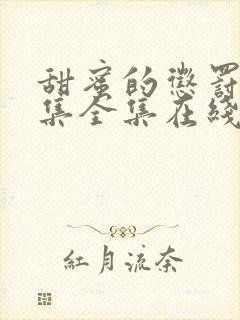 甜蜜的懲罰
集全集在綫
紅月流奈